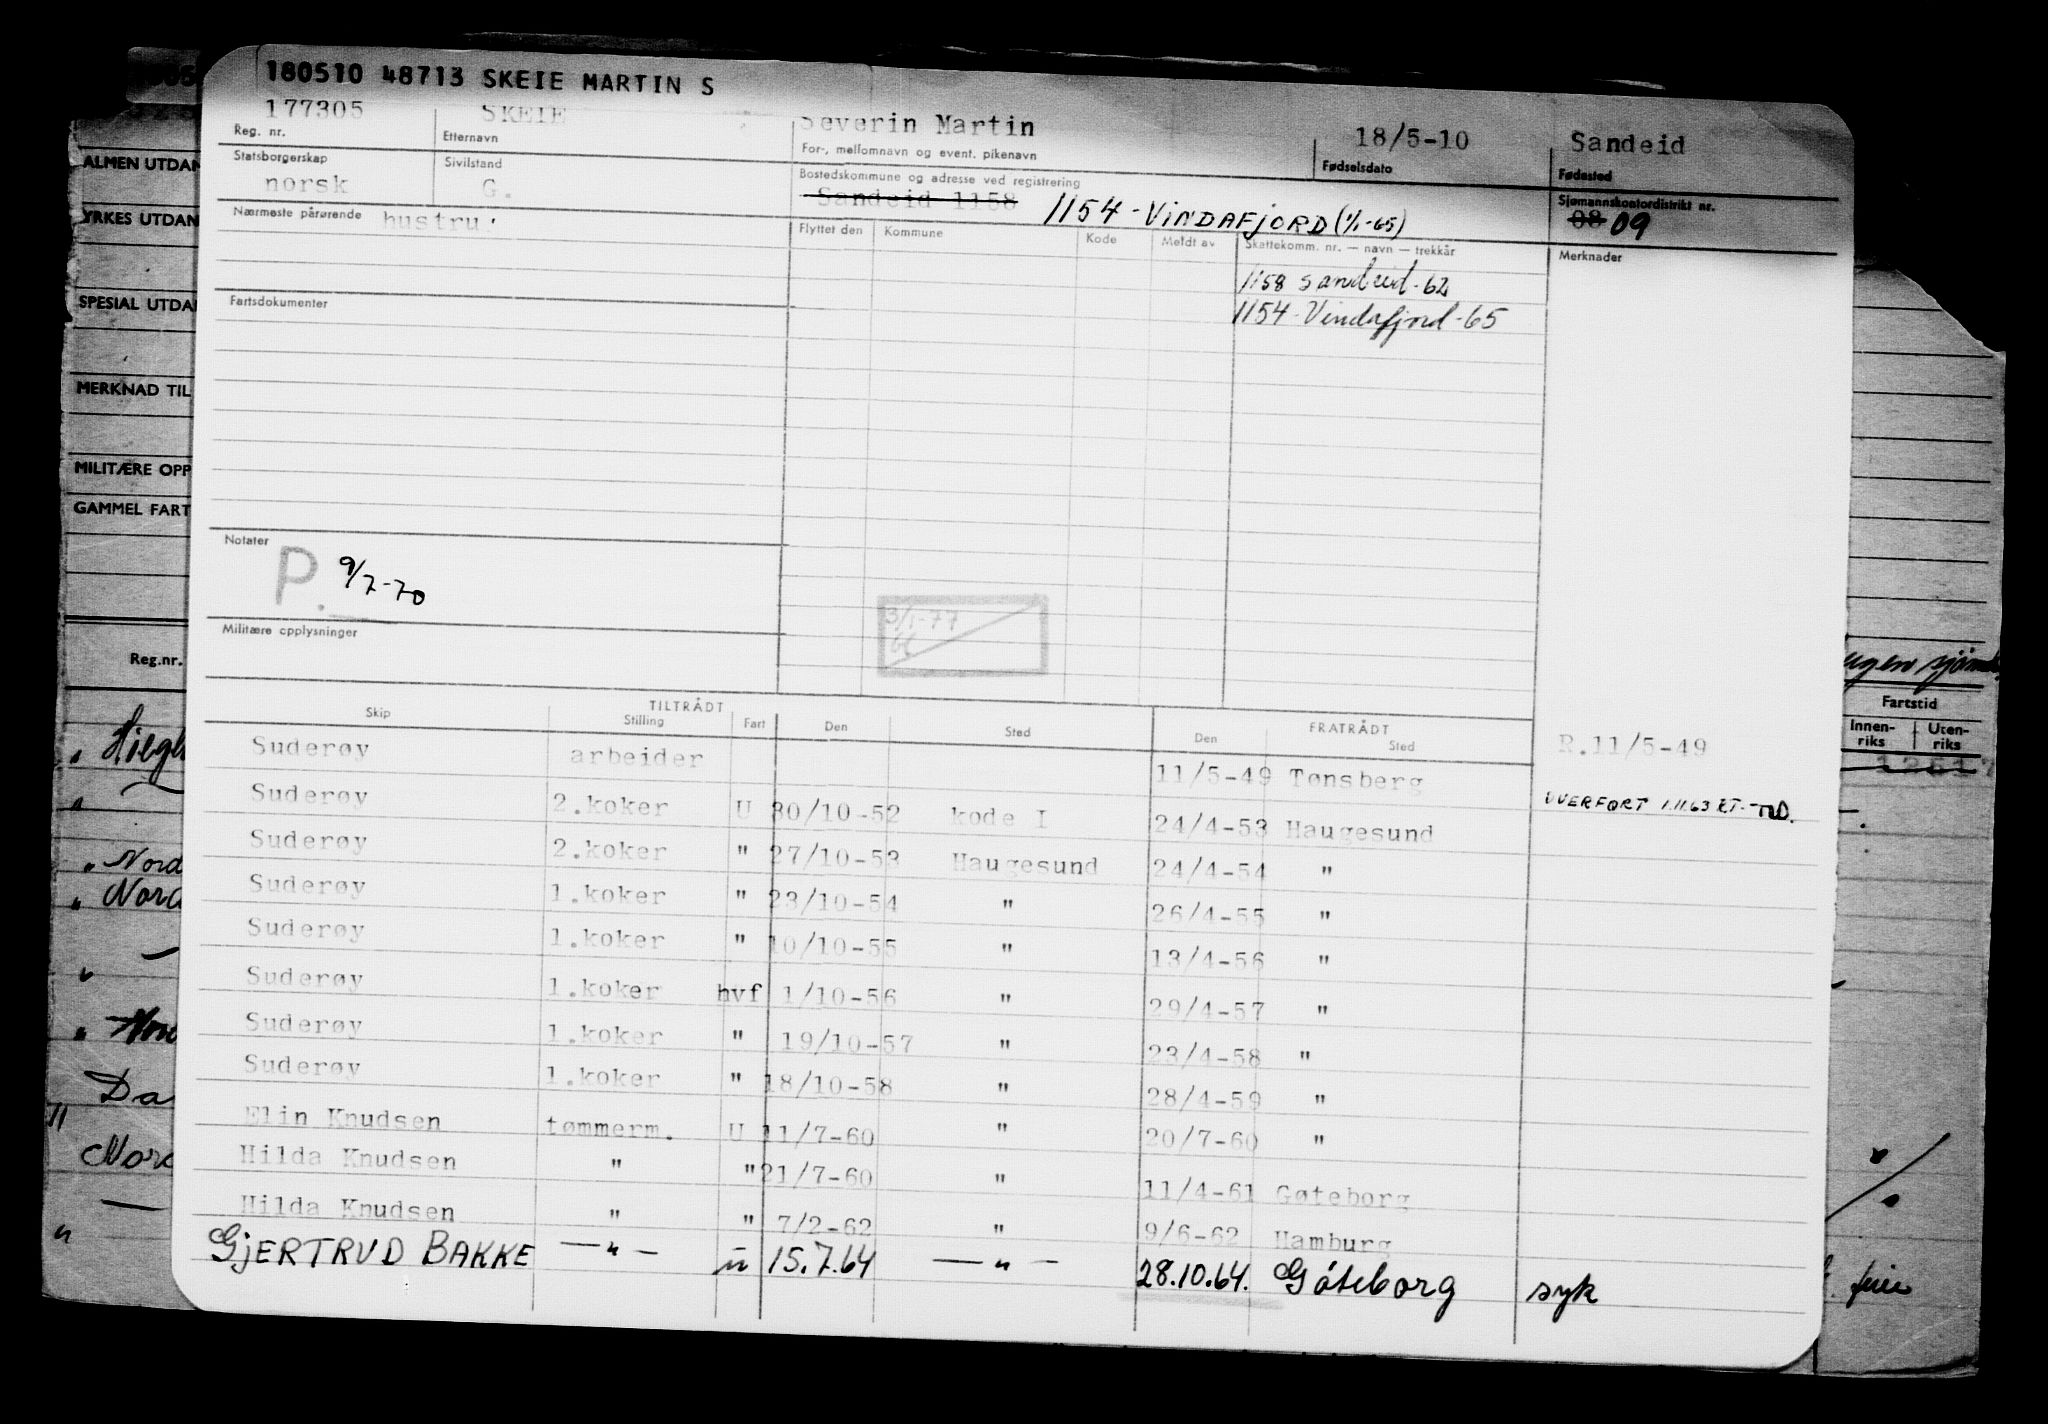 180510 48713 SKEIE MARTIN S
177305 SKEIE Severin Martin 18/5-10 Sandeid
Reg. nr. Etternavn For-, mellomnavn og event. pikenavn Fødselsdato Fødested
Statsborgerskap Sivilstand Bostedskommune og adresse ved registrering Sjømannskontordistrikt nr.
norsk G. Sandeid 1158 1154 - VINDAFJORD (1/1-65) 08 09
Nærmeste pårørende hustru: Flyttet den Kommune Kode Meldt av Skattekomm. nr. — navn — trekkår Merknader
1158 Sandeid - 62
Fartsdokumenter 1154 - Vindafjord - 65
Notater
P. 9/7-70
3/1-77
Militære opplysninger
TILTRÅDT FRATRÅDT
Skip Stilling Fart Den Sted Den Sted
Suderøy arbeider 11/5-49 Tønsberg R.11/5-49
Suderøy 2.koker U 30/10-52 kode I 24/4-53 Haugesund OVERFØRT 1.11.63
Suderøy 2.koker " 27/10-53 Haugesund 24/4-54 "
Suderøy 1.koker " 23/10-54 " 26/4-55 "
Suderøy 1.koker " 10/10-55 " 13/4-56 "
Suderøy 1.koker hvf 1/10-56 " 29/4-57 "
Suderøy 1.koker " 19/10-57 " 23/4-58 "
Suderøy 1.koker " 18/10-58 " 28/4-59 "
Elin Knudsen tømmerm. U 11/7-60 " 20/7-60 "
Hilda Knudsen " " 21/7-60 " 11/4-61 Gøteborg
Hilda Knudsen " " 7/2-62 " 9/6-62 Hamburg
GJERTRUD BAKKE —"— u 15.7.64 —"— 28.10.64. Gøteborg syk
ALMEN UTDAN
YRKES UTDAN
SPESIAL UTDAN
MERKNAD TIL
MILITÆRE OPP
GAMMEL FART
Reg.nr.
Nord
Nord
Da
Nord
Fartstid
Innen-riks Uten-riks